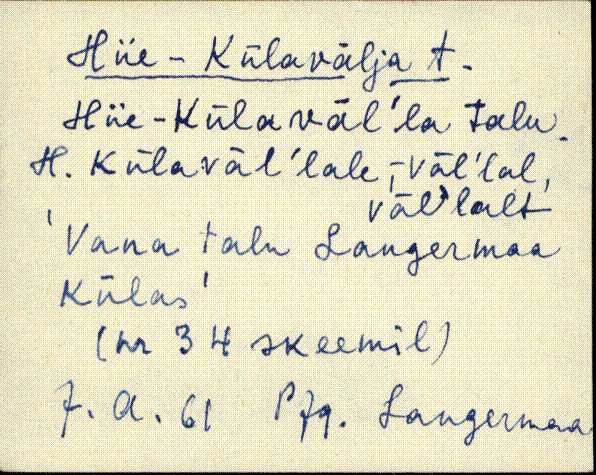 Hiie-Külavälja t.
Hiie-Külaväl'la talu.
H. Külaväl'lale, -väl'lal,
väl'lalt
'Vana talu Langermaa
Külas'
(nr 34 skeemil)
F. A. 61 PJg. Langermaa